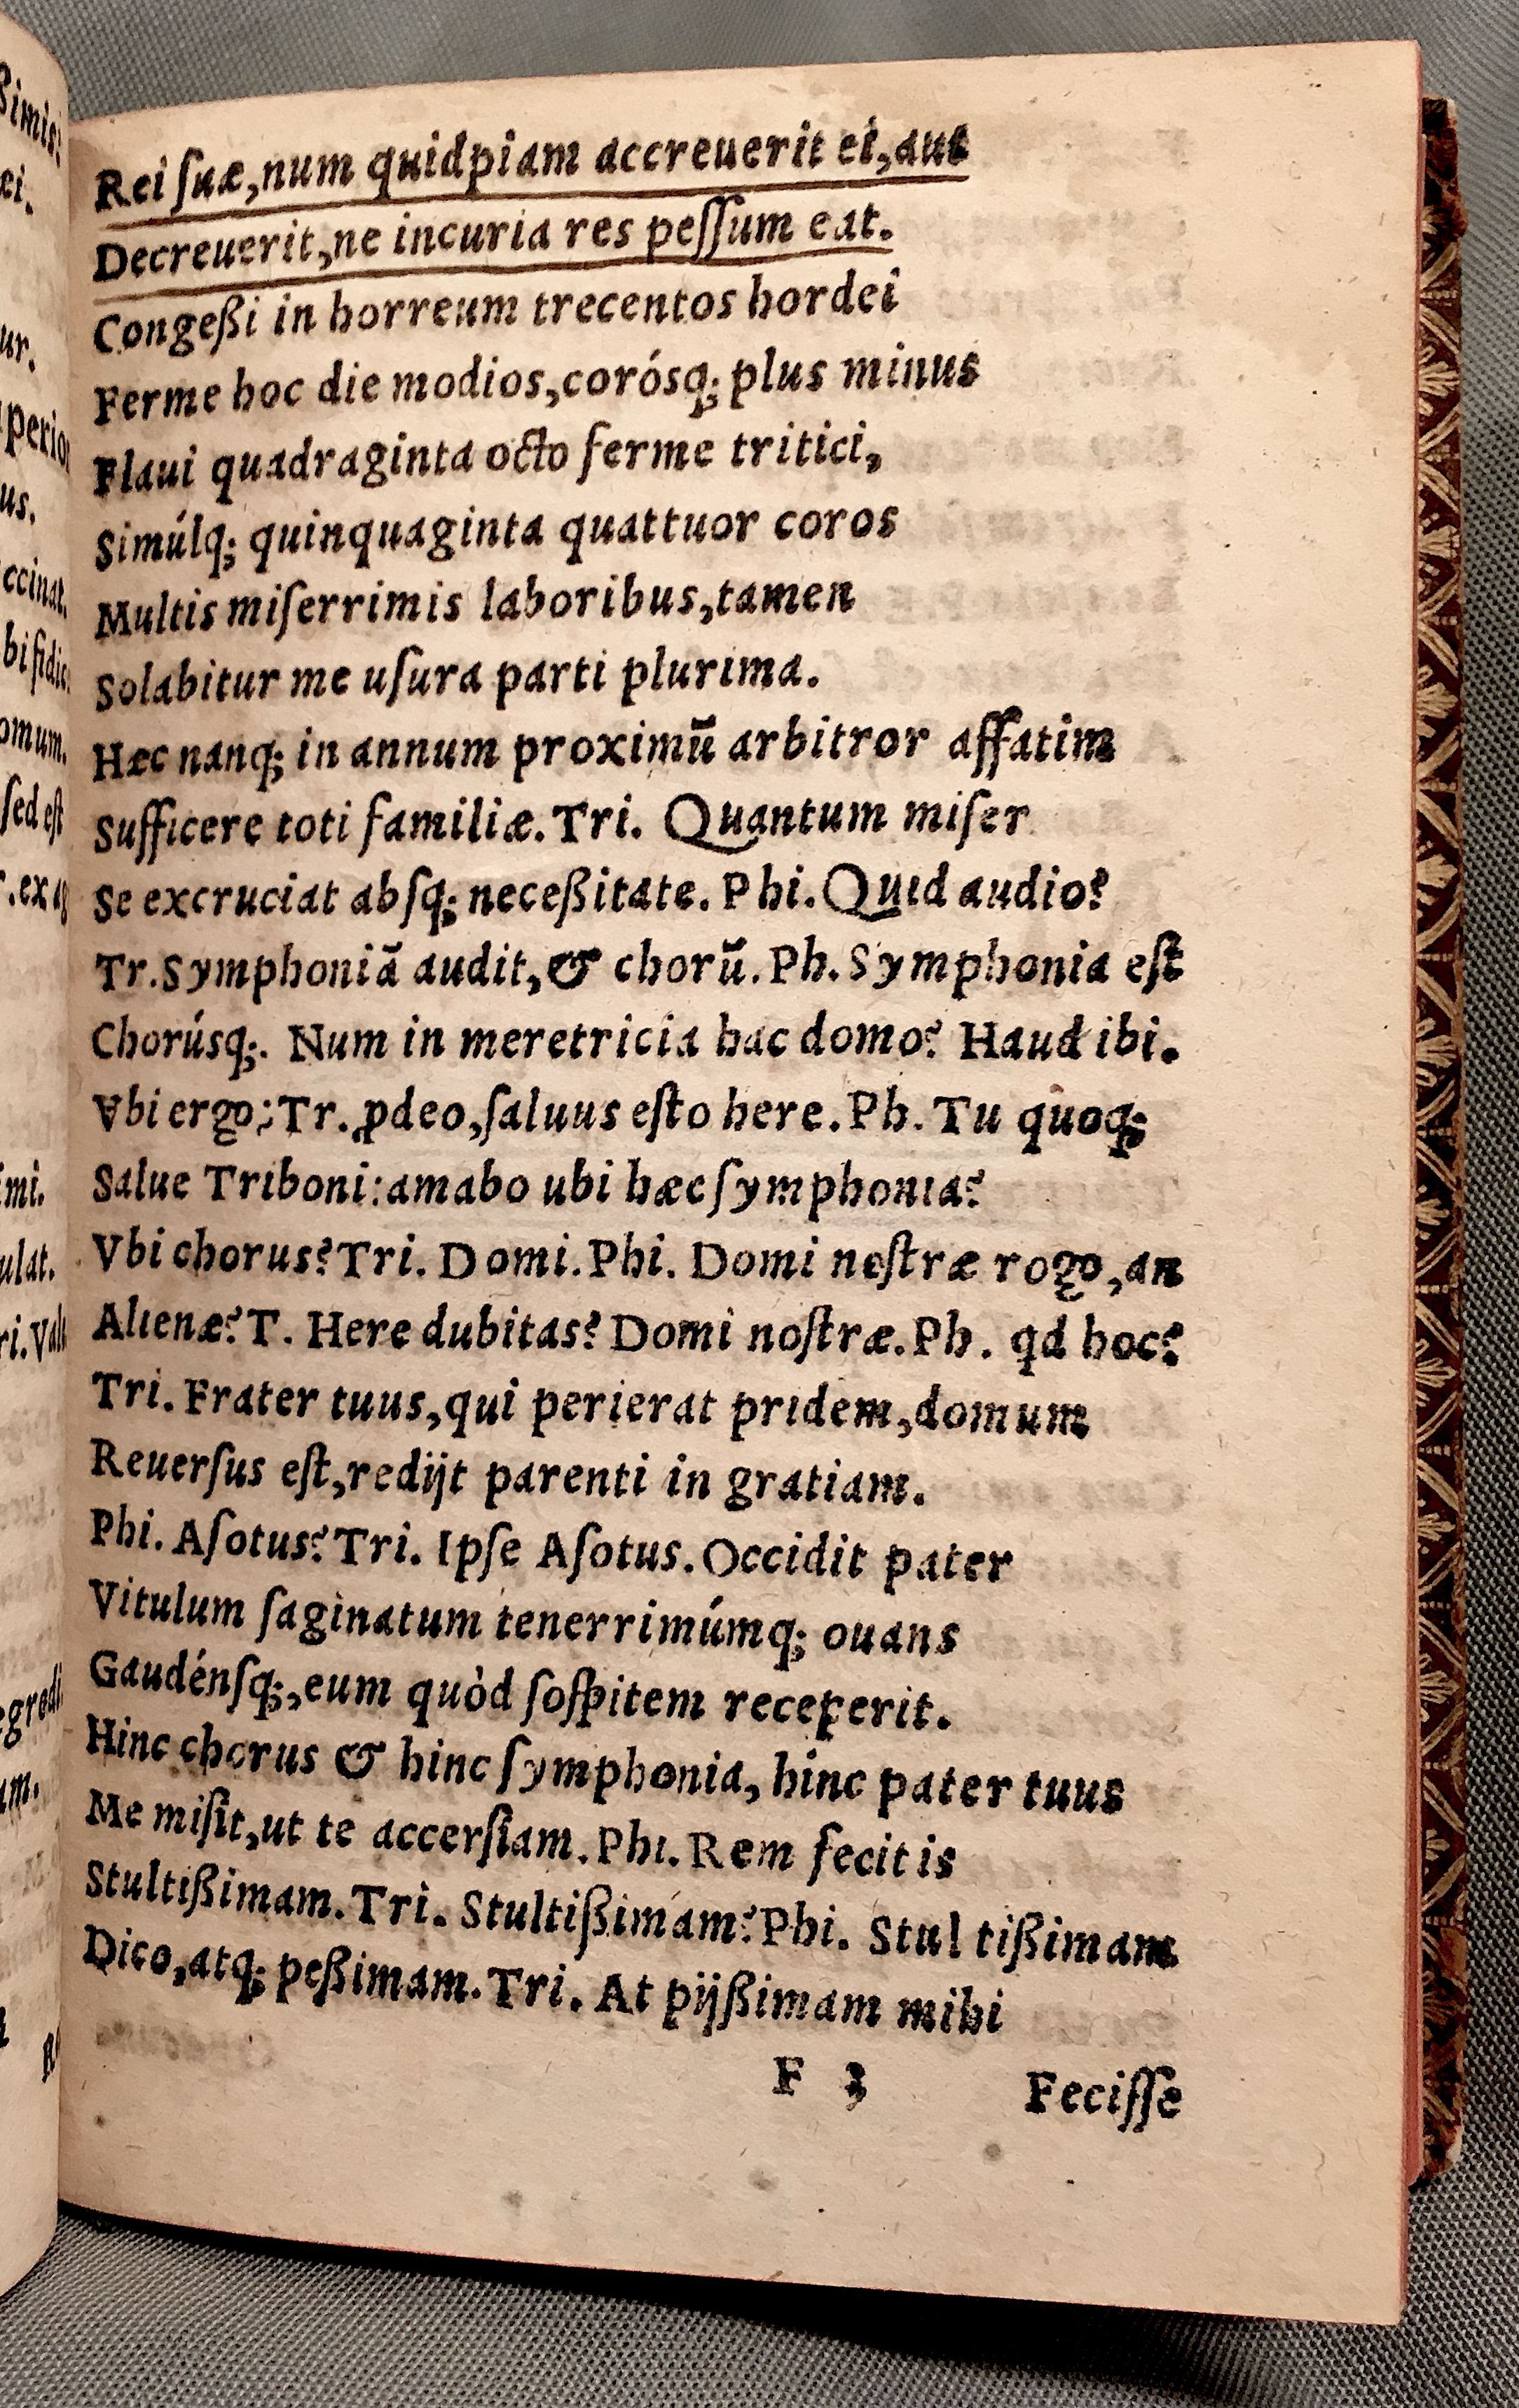 Rei ſuæ,num quidpiam accreuerit ei,aut
Decreuerit,ne incuria res peſſum eat.
Congeßi in horreum trecentos hordei
Ferme hoc die modios,corósq; plus minus
Flaui quadraginta octo ferme tritici,
Simúlq; quinquaginta quattuor coros
Multis miſerrimis laboribus,tamen
Solabitur me uſura parti plurima.
Hæc nanq; in annum proximū arbitror affatim
Sufficere toti familiæ.Tri. Quantum miſer
Se excruciat abſq; neceßitate. Phi. Quid audio?
Tr.Symphoniā audit,& chorū.Ph.Symphonia eſt
Chorúsq;. Num in meretricia hac domo? Haud ibi.
Vbi ergo?Tr.ꝓdeo,ſaluus eſto here.Ph. Tu quoq;
Salue Triboni:amabo ubi hæc ſymphonia?
Vbi chorus?Tri. Domi.Phi. Domi noſtræ rogo,an
Alienæ?T. Here dubitas? Domi noſtræ.Ph. qd hoc?
Tri. Frater tuus,qui perierat pridem,domum
Reuerſus eſt,redijt parenti in gratiam.
Phi. Aſotus?Tri. Ipſe Aſotus.Occidit pater
Vitulum ſaginatum tenerrimúmq; ouans
Gaudénſq;,eum quòd ſoſpitem receperit.
Hinc chorus & hinc ſymphonia, hinc pater tuus
Me miſit,ut te accerſiam.Phi.Rem fecit is
Stultißimam.Tri. Stultißimam?Phi. Stul tißimam
Dico,atq; peßimam.Tri. At pijßimam mihi
F 3 Feciſſe